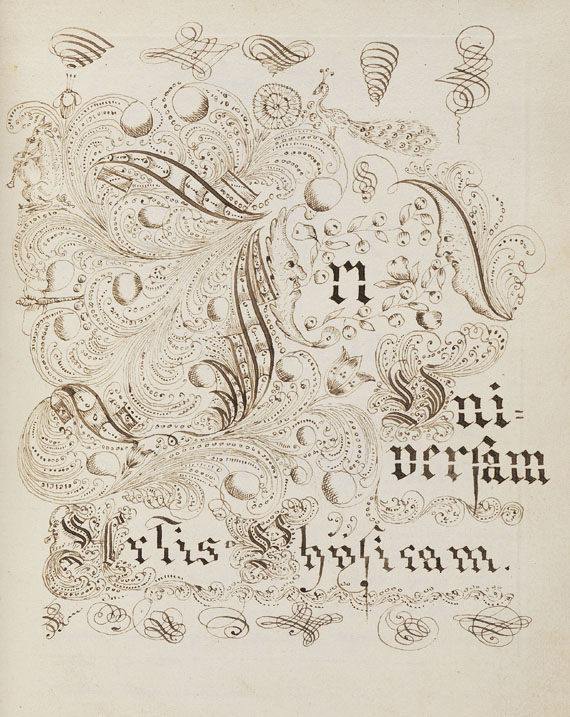 In
Uni-
versam
Artis-Physicam.